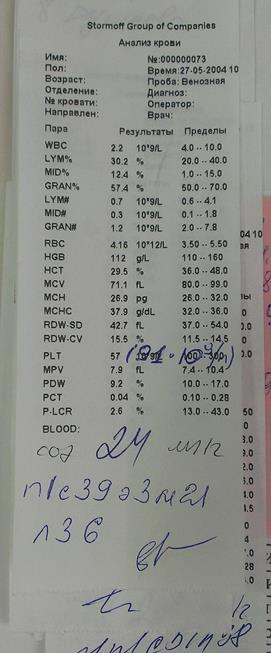 Stormoff Group of Companies
Анализ крови
Имя: №:000000073
Пол: Время:27-05-2004 10
Возраст: Проба: Венозная
Отделение: Диагноз:
№ кровати: Оператор:
Направлен: Врач:
Пара Результаты Пределы
WBC 2.2 10*9/L 4.0 -- 10.0
LYM% 30.2 % 20.0 -- 40.0
MID% 12.4 % 1.0 -- 15.0
GRAN% 57.4 % 50.0 -- 70.0
LYM# 0.7 10*9/L 0.6 -- 4.1
MID# 0.3 10*9/L 0.1 -- 1.8
GRAN# 1.2 10*9/L 2.0 -- 7.8
RBC 4.16 10*12/L 3.50 -- 5.50
HGB 112 g/L 110 -- 160
HCT 29.5 % 36.0 -- 48.0
MCV 71.1 fL 80.0 -- 99.0
MCH 26.9 pg 26.0 -- 32.0
MCHC 37.9 g/dL 32.0 -- 36.0
RDW-SD 42.7 fL 37.0 -- 54.0
RDW-CV 15.5 % 11.5 -- 14.5
PLT 57
MPV 7.9 fL 7.4 -- 10.4
PDW 9.2 % 10.0 -- 17.0
PCT 0.04 % 0.10 -- 0.28
P-LCR 2.6 % 13.0 -- 43.0
BLOOD:
соэ 24 мм/ч
л36